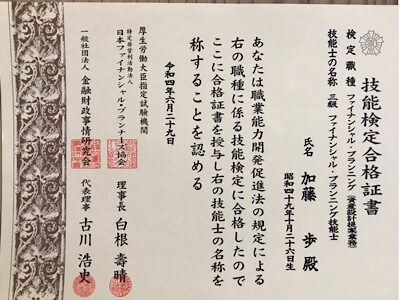 技能検定合格証書
検定職種 ファイナンシャル・プランニング(資産設計提案業務)
技能士の名称 三級ファイナンシャル・プランニング技能士
氏名 加藤 歩 殿
昭和四十九年十月二十六日生
あなたは職業能力開発促進法の規定による
右の職種に係る技能検定に合格したので
ここに合格証書を授与し右の技能士の名称を
称することを認める
令和四年六月二十九日
厚生労働大臣指定試験機関
特定非営利活動法人
日本ファイナンシャル・プランナーズ協会 理事長 白根 壽晴
一般社団法人 金融財政事情研究会 代表理事 古川 浩史